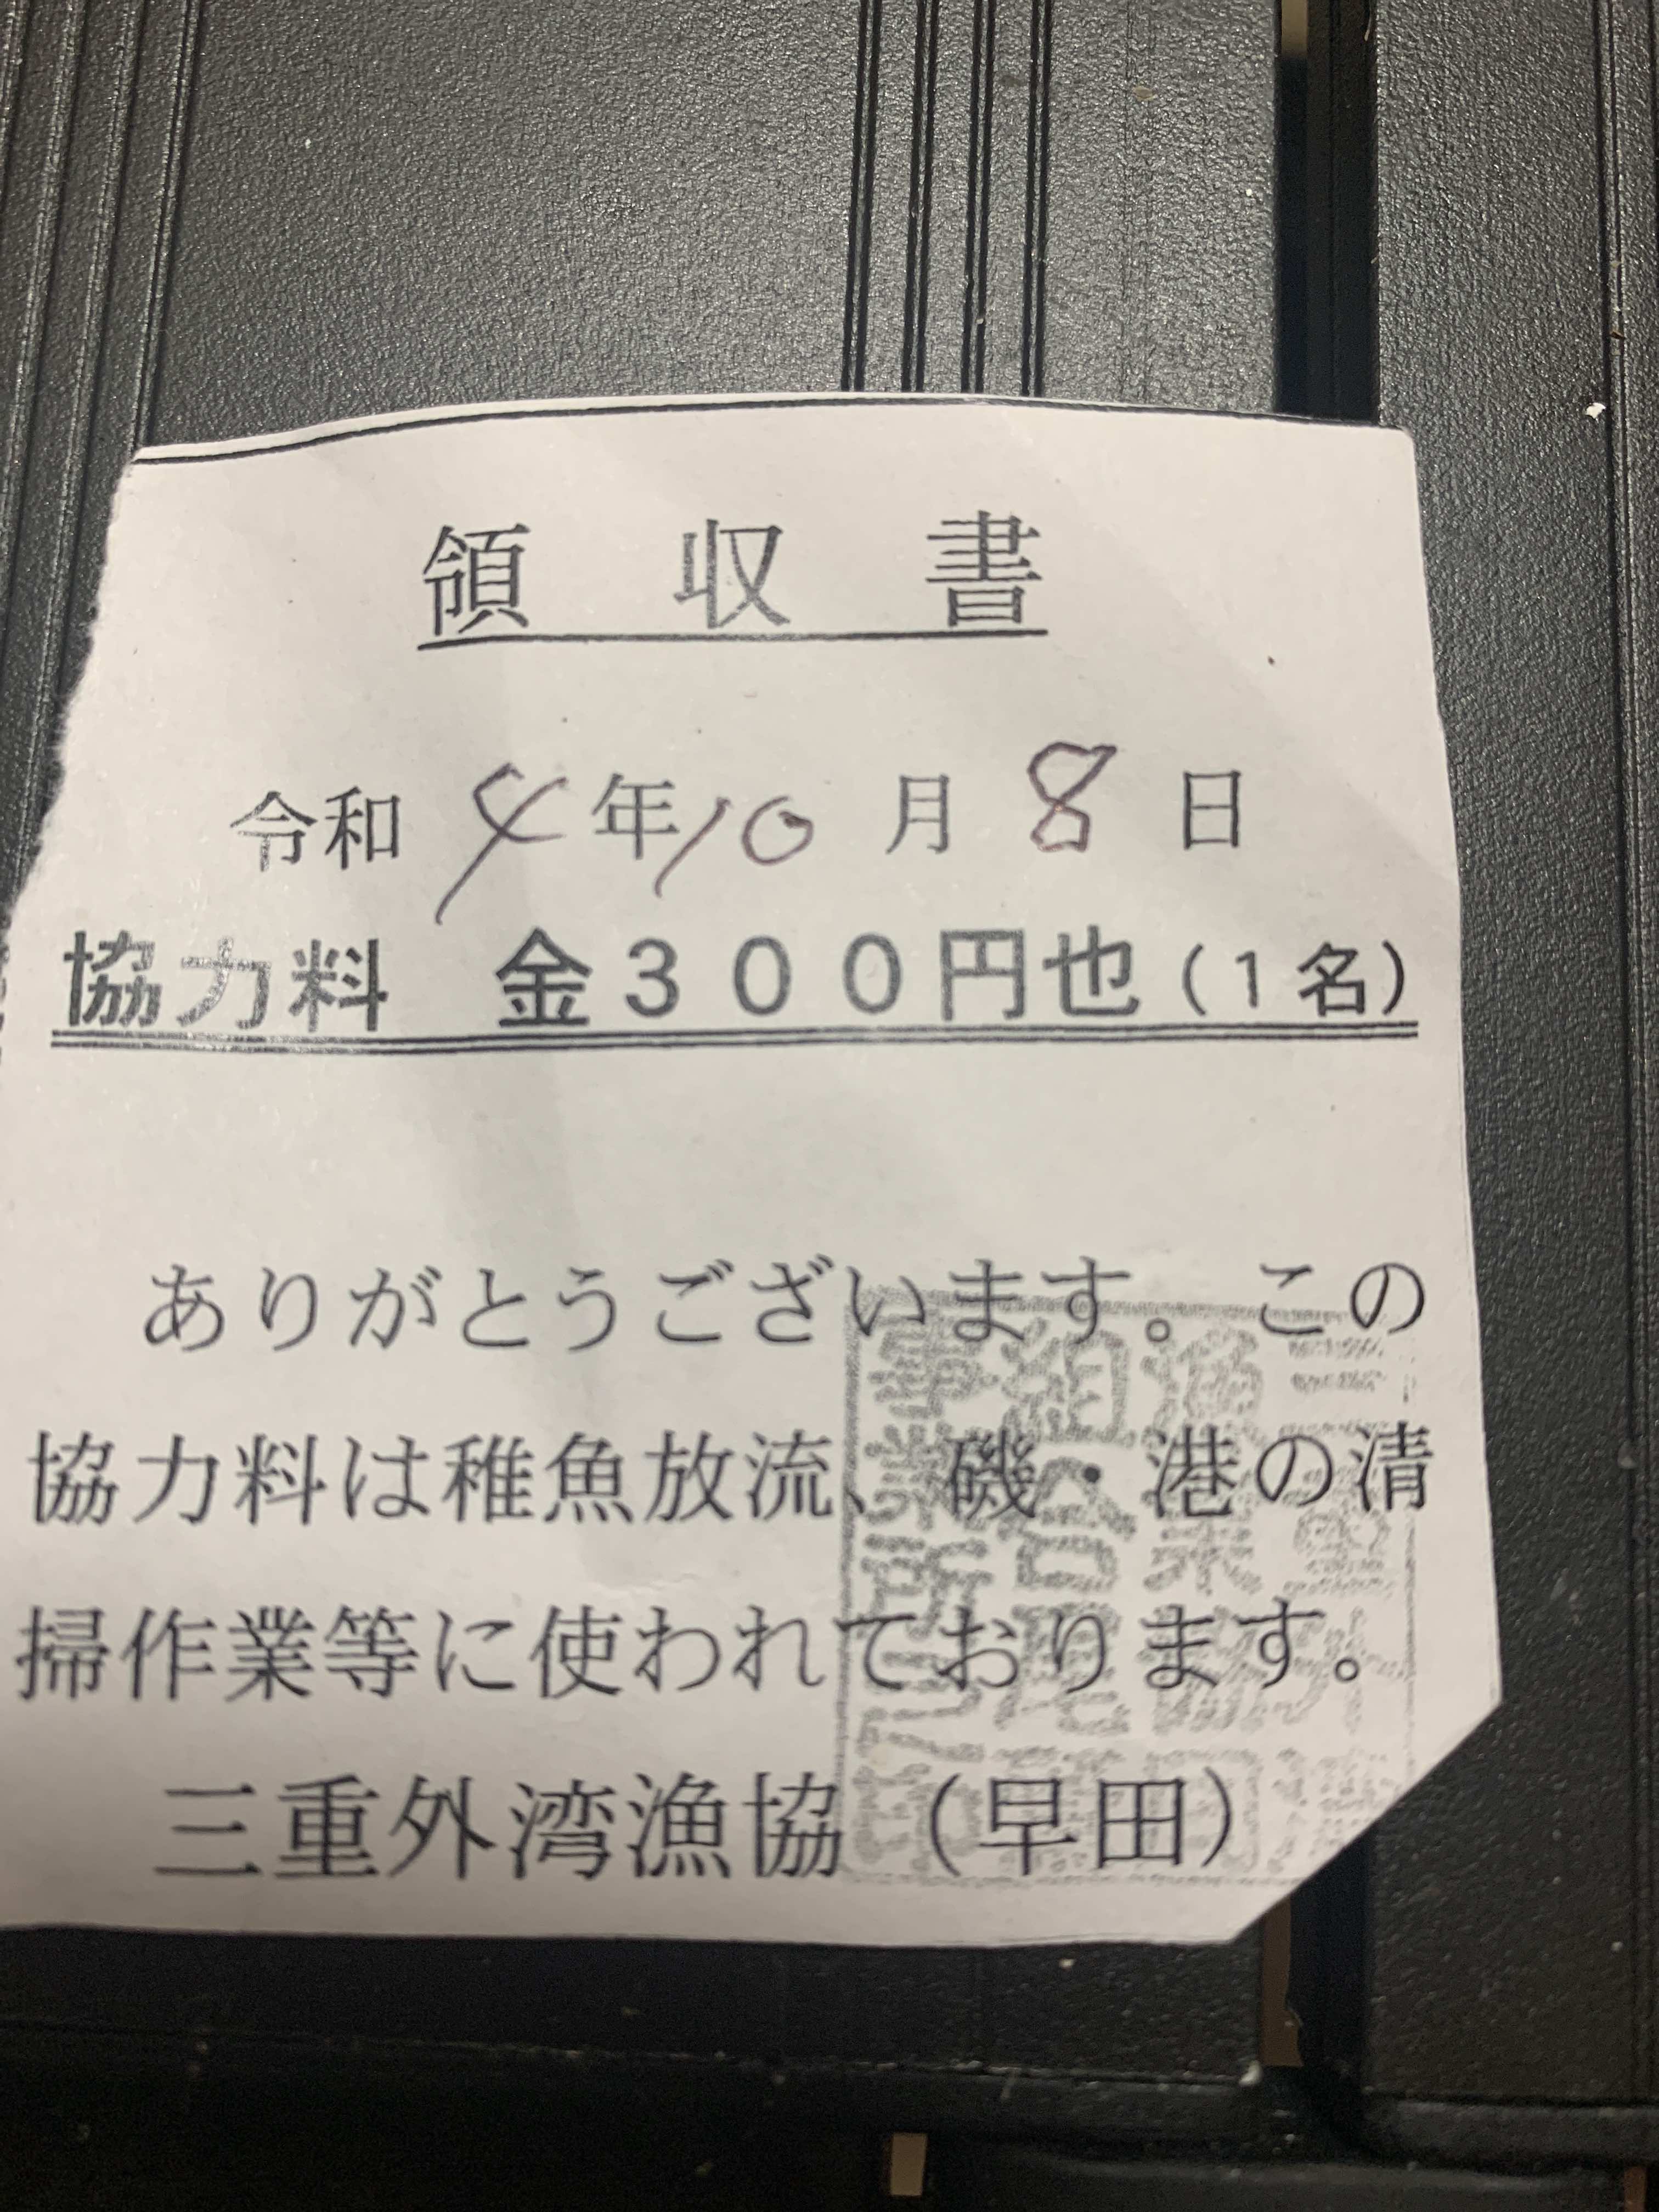 領収書
令和4年10月8日
協力料 金300円也(1名)
ありがとうございます。この
協力料は稚魚放流、磯・港の清
掃作業等に使われております。
三重外湾漁協(早田)